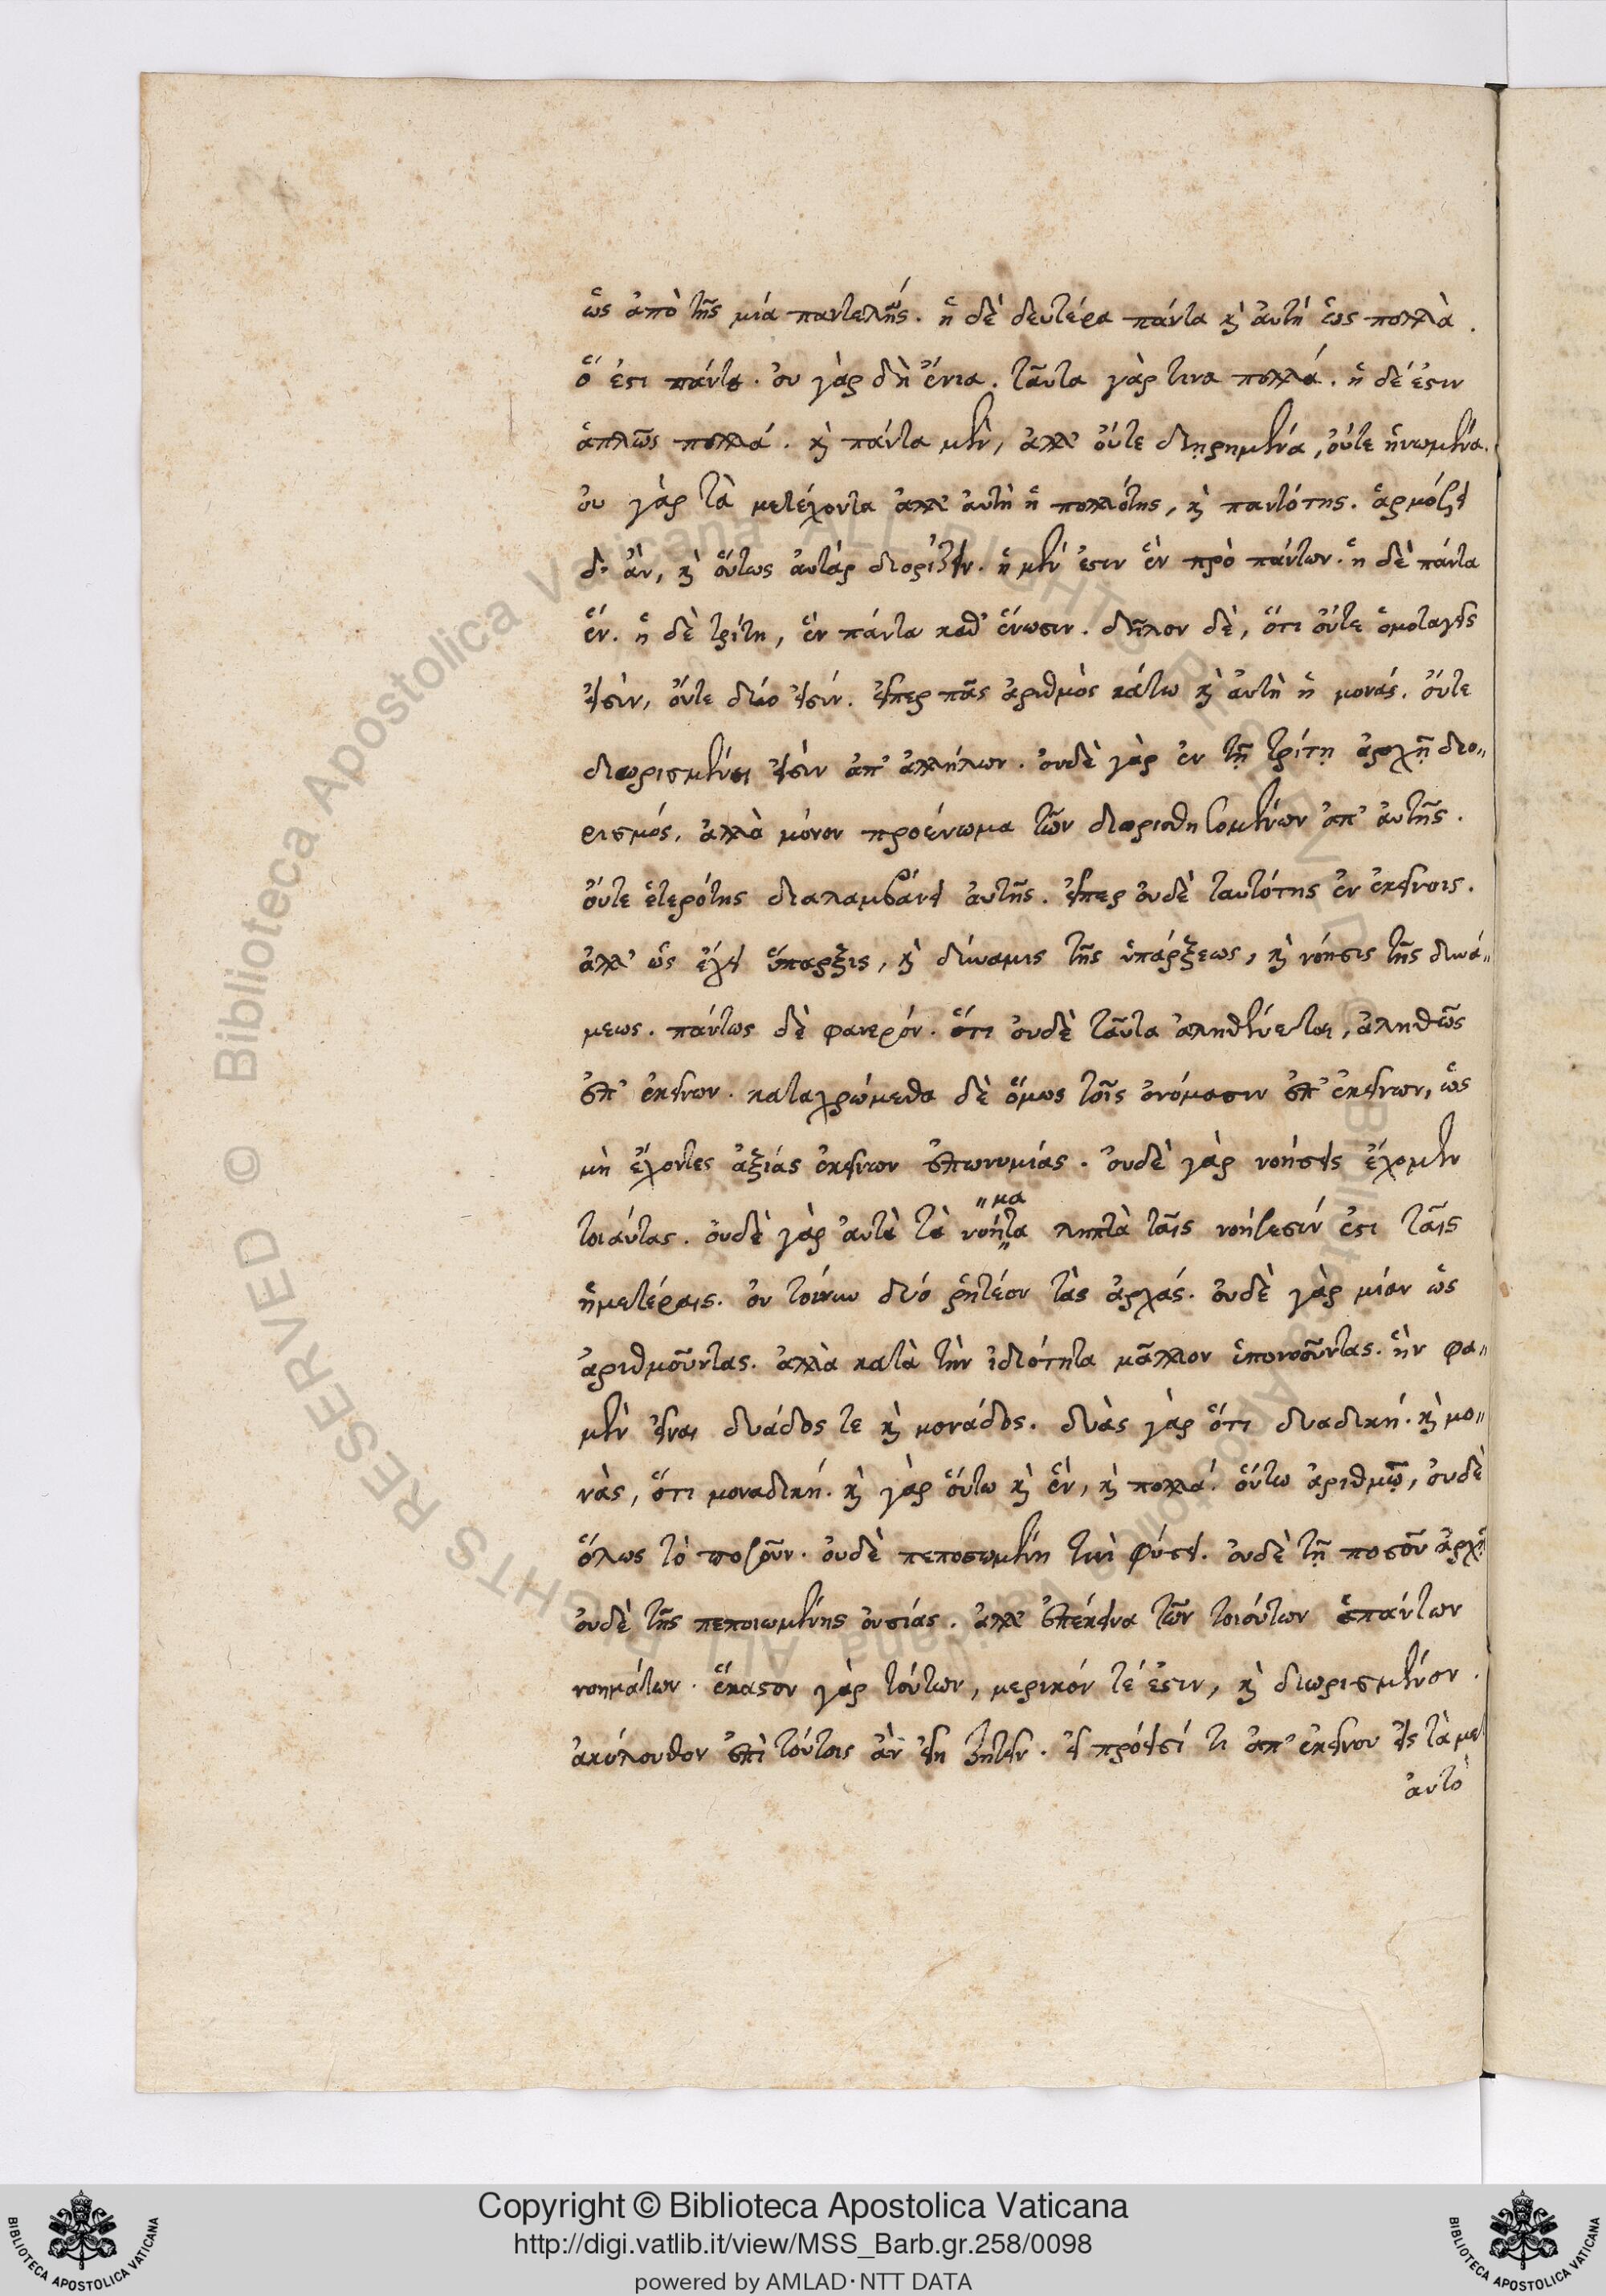 ὡς ἀπὸ τῆς μία παντελής. ἡ δὲ δευτέρα πάντα κὶ ἀυτή ὡς πολλὰ.
ὅ ἐστι πάντα. ὀυ γὰρ δὴ ἔνια. ταῦτα γὰρ τινα πολλά. ἡ δέ ἐστιν
ἁπλῶς πολλά. κὶ πάντα μὲν, ἀλλ' ὄυτε διῃρημένα, ὄυτε ἡνωμένα.
ὀυ γὰρ τὰ μετέχοντα ἀλλ' ἀυτὴ ἡ πολλότης, κὶ παντότης. ἁρμόζει
δ' ἂν, κὶ ὅυτως ἀυτὰρ διορίζειν. ἡ μέν ἐστιν ἓν πρὸ πάντων. ἡ δὲ πάντα
ἕν. ἡ δὲ τρίτη, ἓν πάντα καθ' ἕνωσιν. δῆλον δὲ, ὅτι ὄυτε ὁμοταγεῖς
εἰσὶν, ὄυτε δύο εἰσίν. εἴπερ πᾶς ἀριθμὸς κάτω κὶ ἀυτὴ ἡ μονάς. ὄυτε
διωρισμέναι εἰσὶν ἀπ' ἀλλήλων. ὀυδὲ γὰρ ἐν τῇ τρίτῃ ἀρχῇ διο„
ρισμός, ἀλλὰ μόνον προένωμα τῶν διορισθησομένων ἀπ' ἀυτῆς.
ὄυτε ἑτερότης διαλαμβάνει ἀυτῆς. εἴπερ ὀυδὲ ταυτότης ἐν ἐκείνοις.
ἀλλ' ὡς ἔχει ὕπαρξις, κὶ δύναμις τῆς ὑπάρξεως, κὶ νόησις τῆς δυνά„
μεως. πάντως δὲ φανερόν. ὅτι ὀυδὲ ταῦτα ἀληθέυεται, ἀληθῶς
ἐπ' ἐκείνων. καταχρώμεθα δὲ ὅμως τοῖς ὀνόμασιν ἐπ' ἐκείνων, ὡς
μὴ ἔχοντες ἀξιάς ἐκείνων ἐπωνυμίας. ὀυδὲ γὰρ νοήσεις ἔχομεν
„μα
τοιάυτας. ὀυδὲ γὰρ ἀυτὰ τὰ νοήτα ληπτὰ ταῖς νοήσεσίν ἐστι ταῖς
ἡμετέραις. ὀυ τοίνυν δύο ῥητέον τὰς ἀρχάς. ὀυδὲ γὰρ μίαν ὡς
ἀριθμοῦντας. ἀλλὰ κατὰ τὴν ἰδιότητα μᾶλλον ὑπονοοῦντας. ἣν φα„
μὲν εἶναι δυάδος τε κὶ μονάδος. δυὰς γὰρ ὅτι δυαδική. κὶ μο„
νὰς, ὅτι μοναδική. κὶ γὰρ ὅυτω κὶ ἓν, κὶ πολλά. ὅυτω ἀριθμῷ, ὀυδὲ
ὅλως τὸ ποσοῦν. ὀυδὲ πεποσωμένη τινὶ φύσει. ὀυδὲ τῇ ποσοῦν ἀρχῇ
ὀυδὲ τῆς πεποιωμένης ὀυσίας. ἀλλ' ἐπέκεινα τῶν τοιούτων ἁπάντων
νοημάτων. ἕκαστον γὰρ τούτων, μερικόν τέ ἐστιν, κὶ διωρισμένον.
ἀκόλουθον ἐπὶ τούτοις ἂν εἴη ζητεῖν. εἰ πρόεισί τι ἀπ' ἐκείνου εἰς τὰ μετ
ἀυτὸ
Copyright © Biblioteca Apostolica Vaticana
http://digi.vatlib.it/view/MSS_Barb.gr.258/0098
powered by AMLAD·NTT DATA